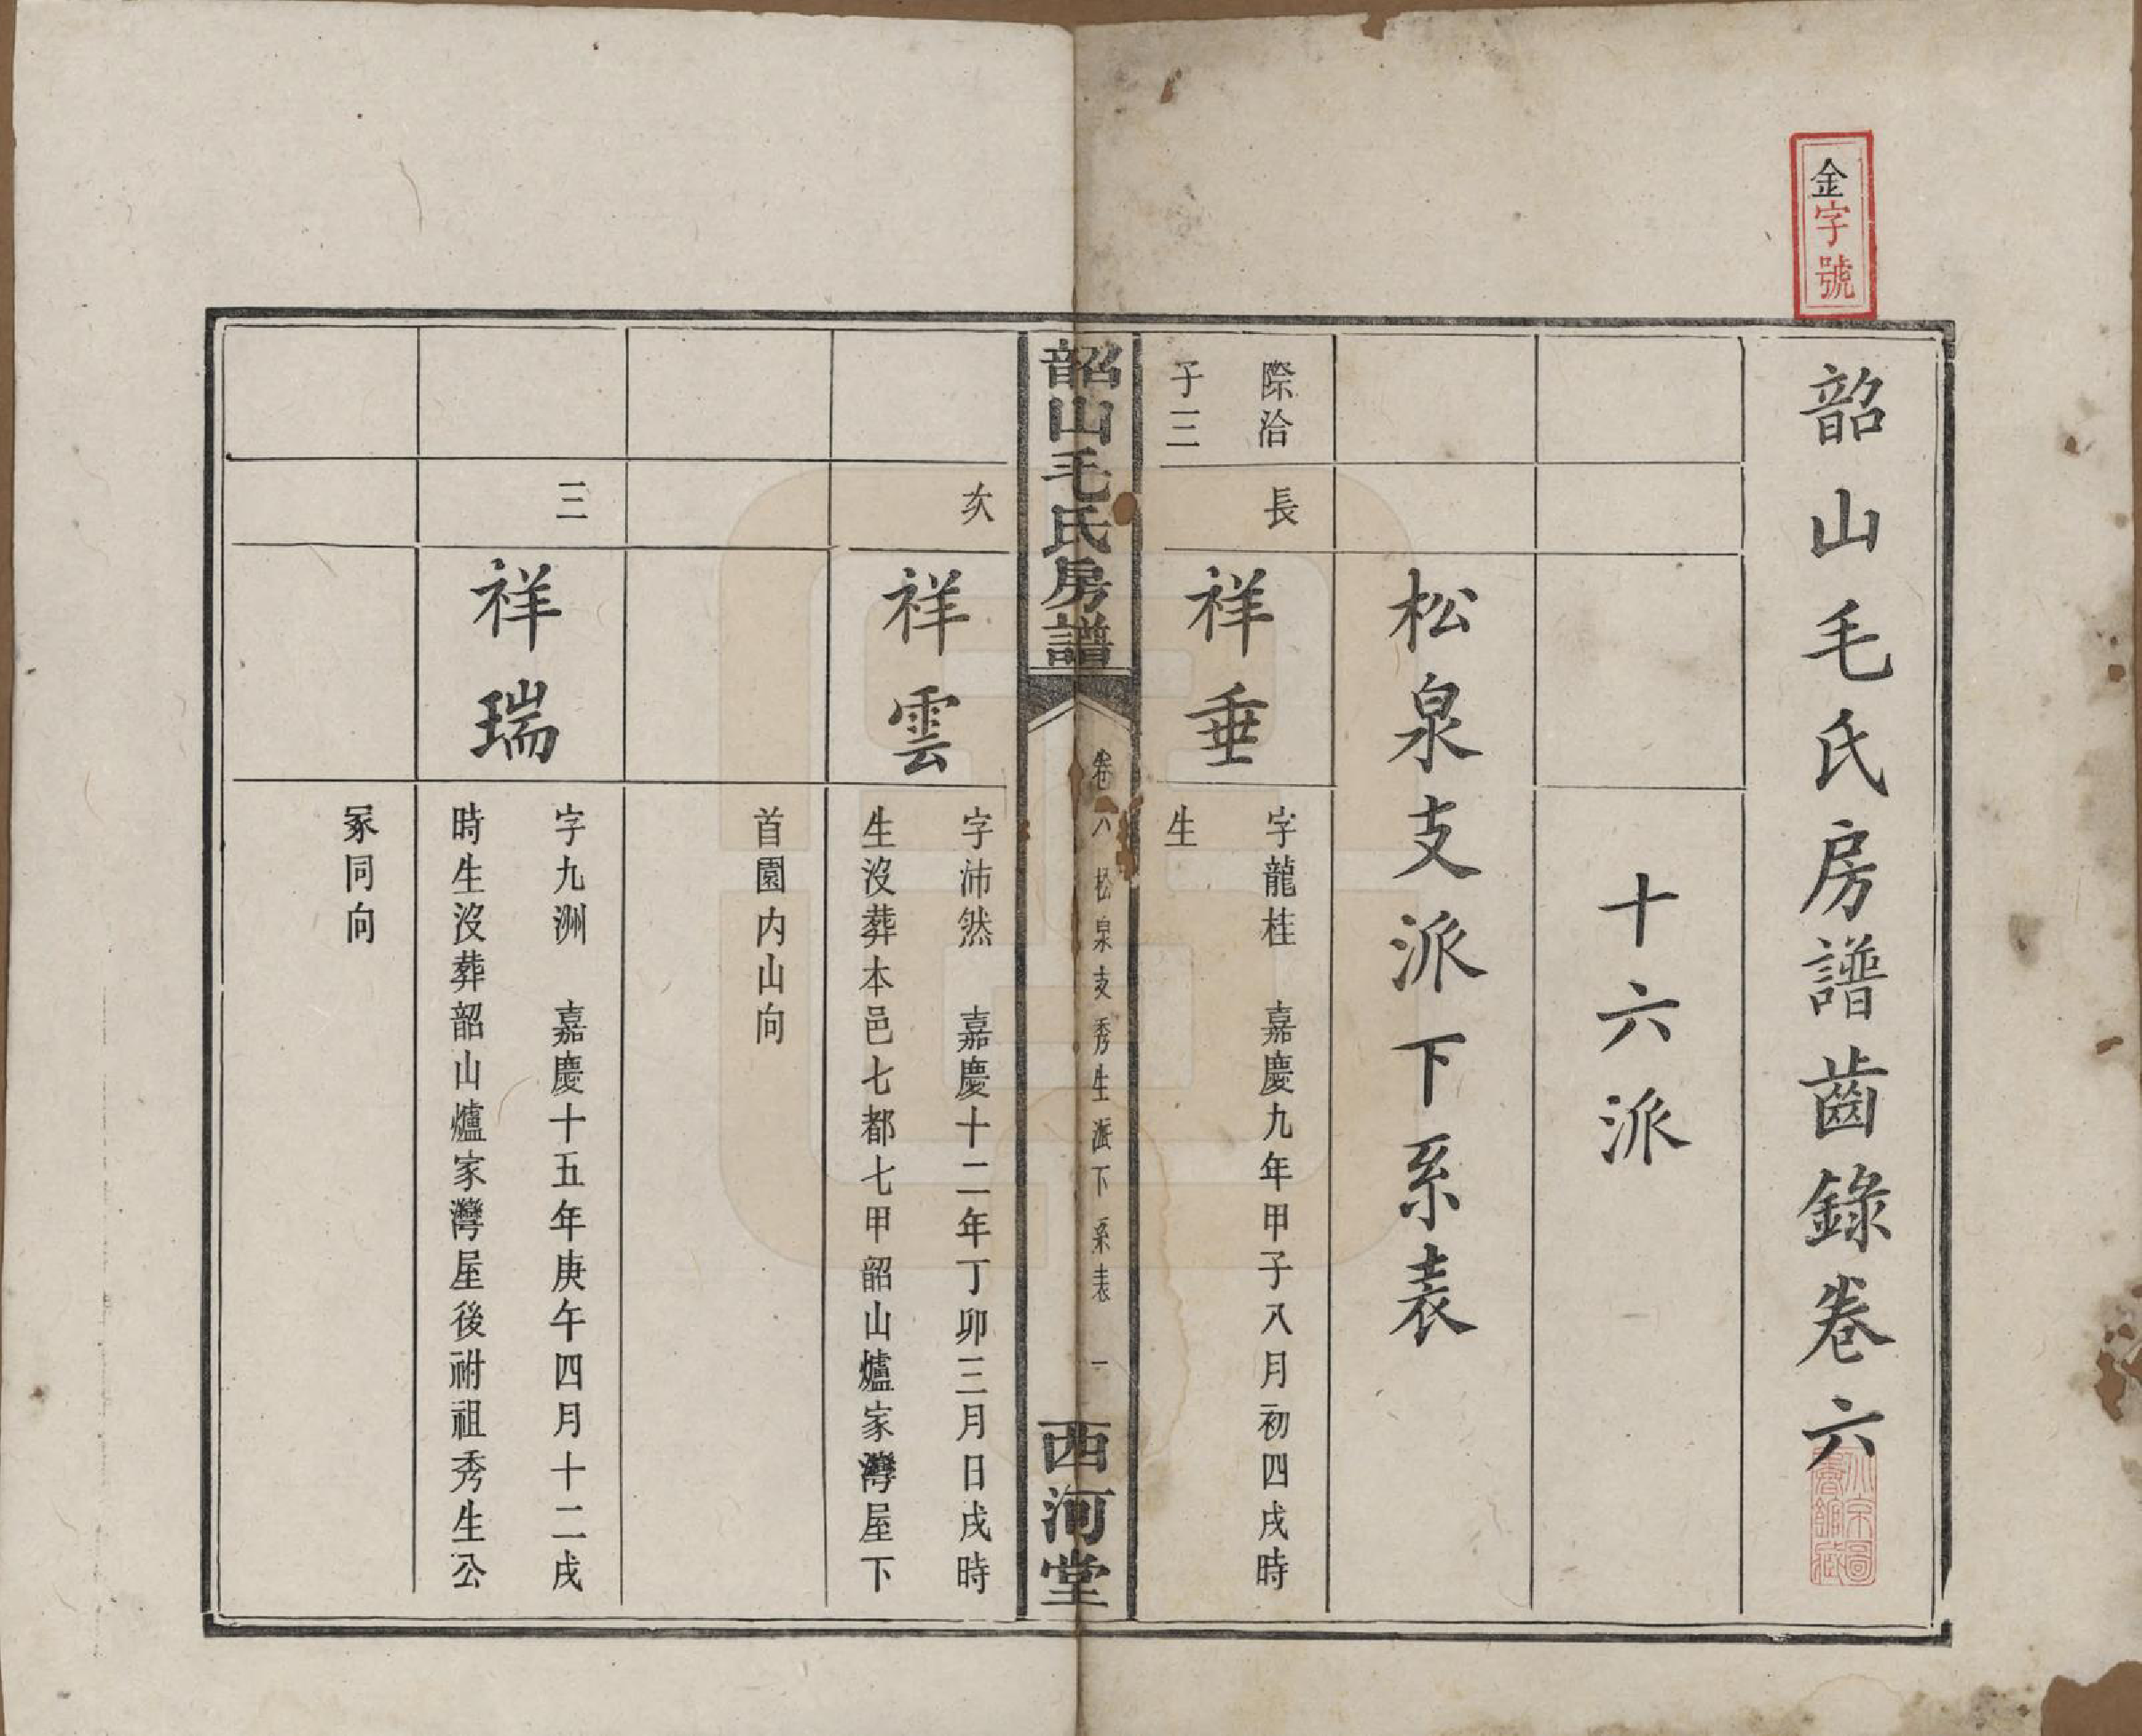 金字號
韶山毛氏房譜齒錄卷六
十六派
松泉支派下系表
際洽
子三
長
祥垂
字龍桂 嘉慶九年甲子八月初四戌時
生
韶山毛氏房譜
卷六 松泉支秀生派下系表 一
西河堂
次
祥雲
字沛然 嘉慶十二年丁卯三月日戌時
生沒葬本邑七都七甲韶山爐家灣屋下
首園内山向
三
祥瑞
字九洲 嘉慶十五年庚午四月十二戌
時生沒葬韶山爐家灣屋後祔祖秀生公
冢同向